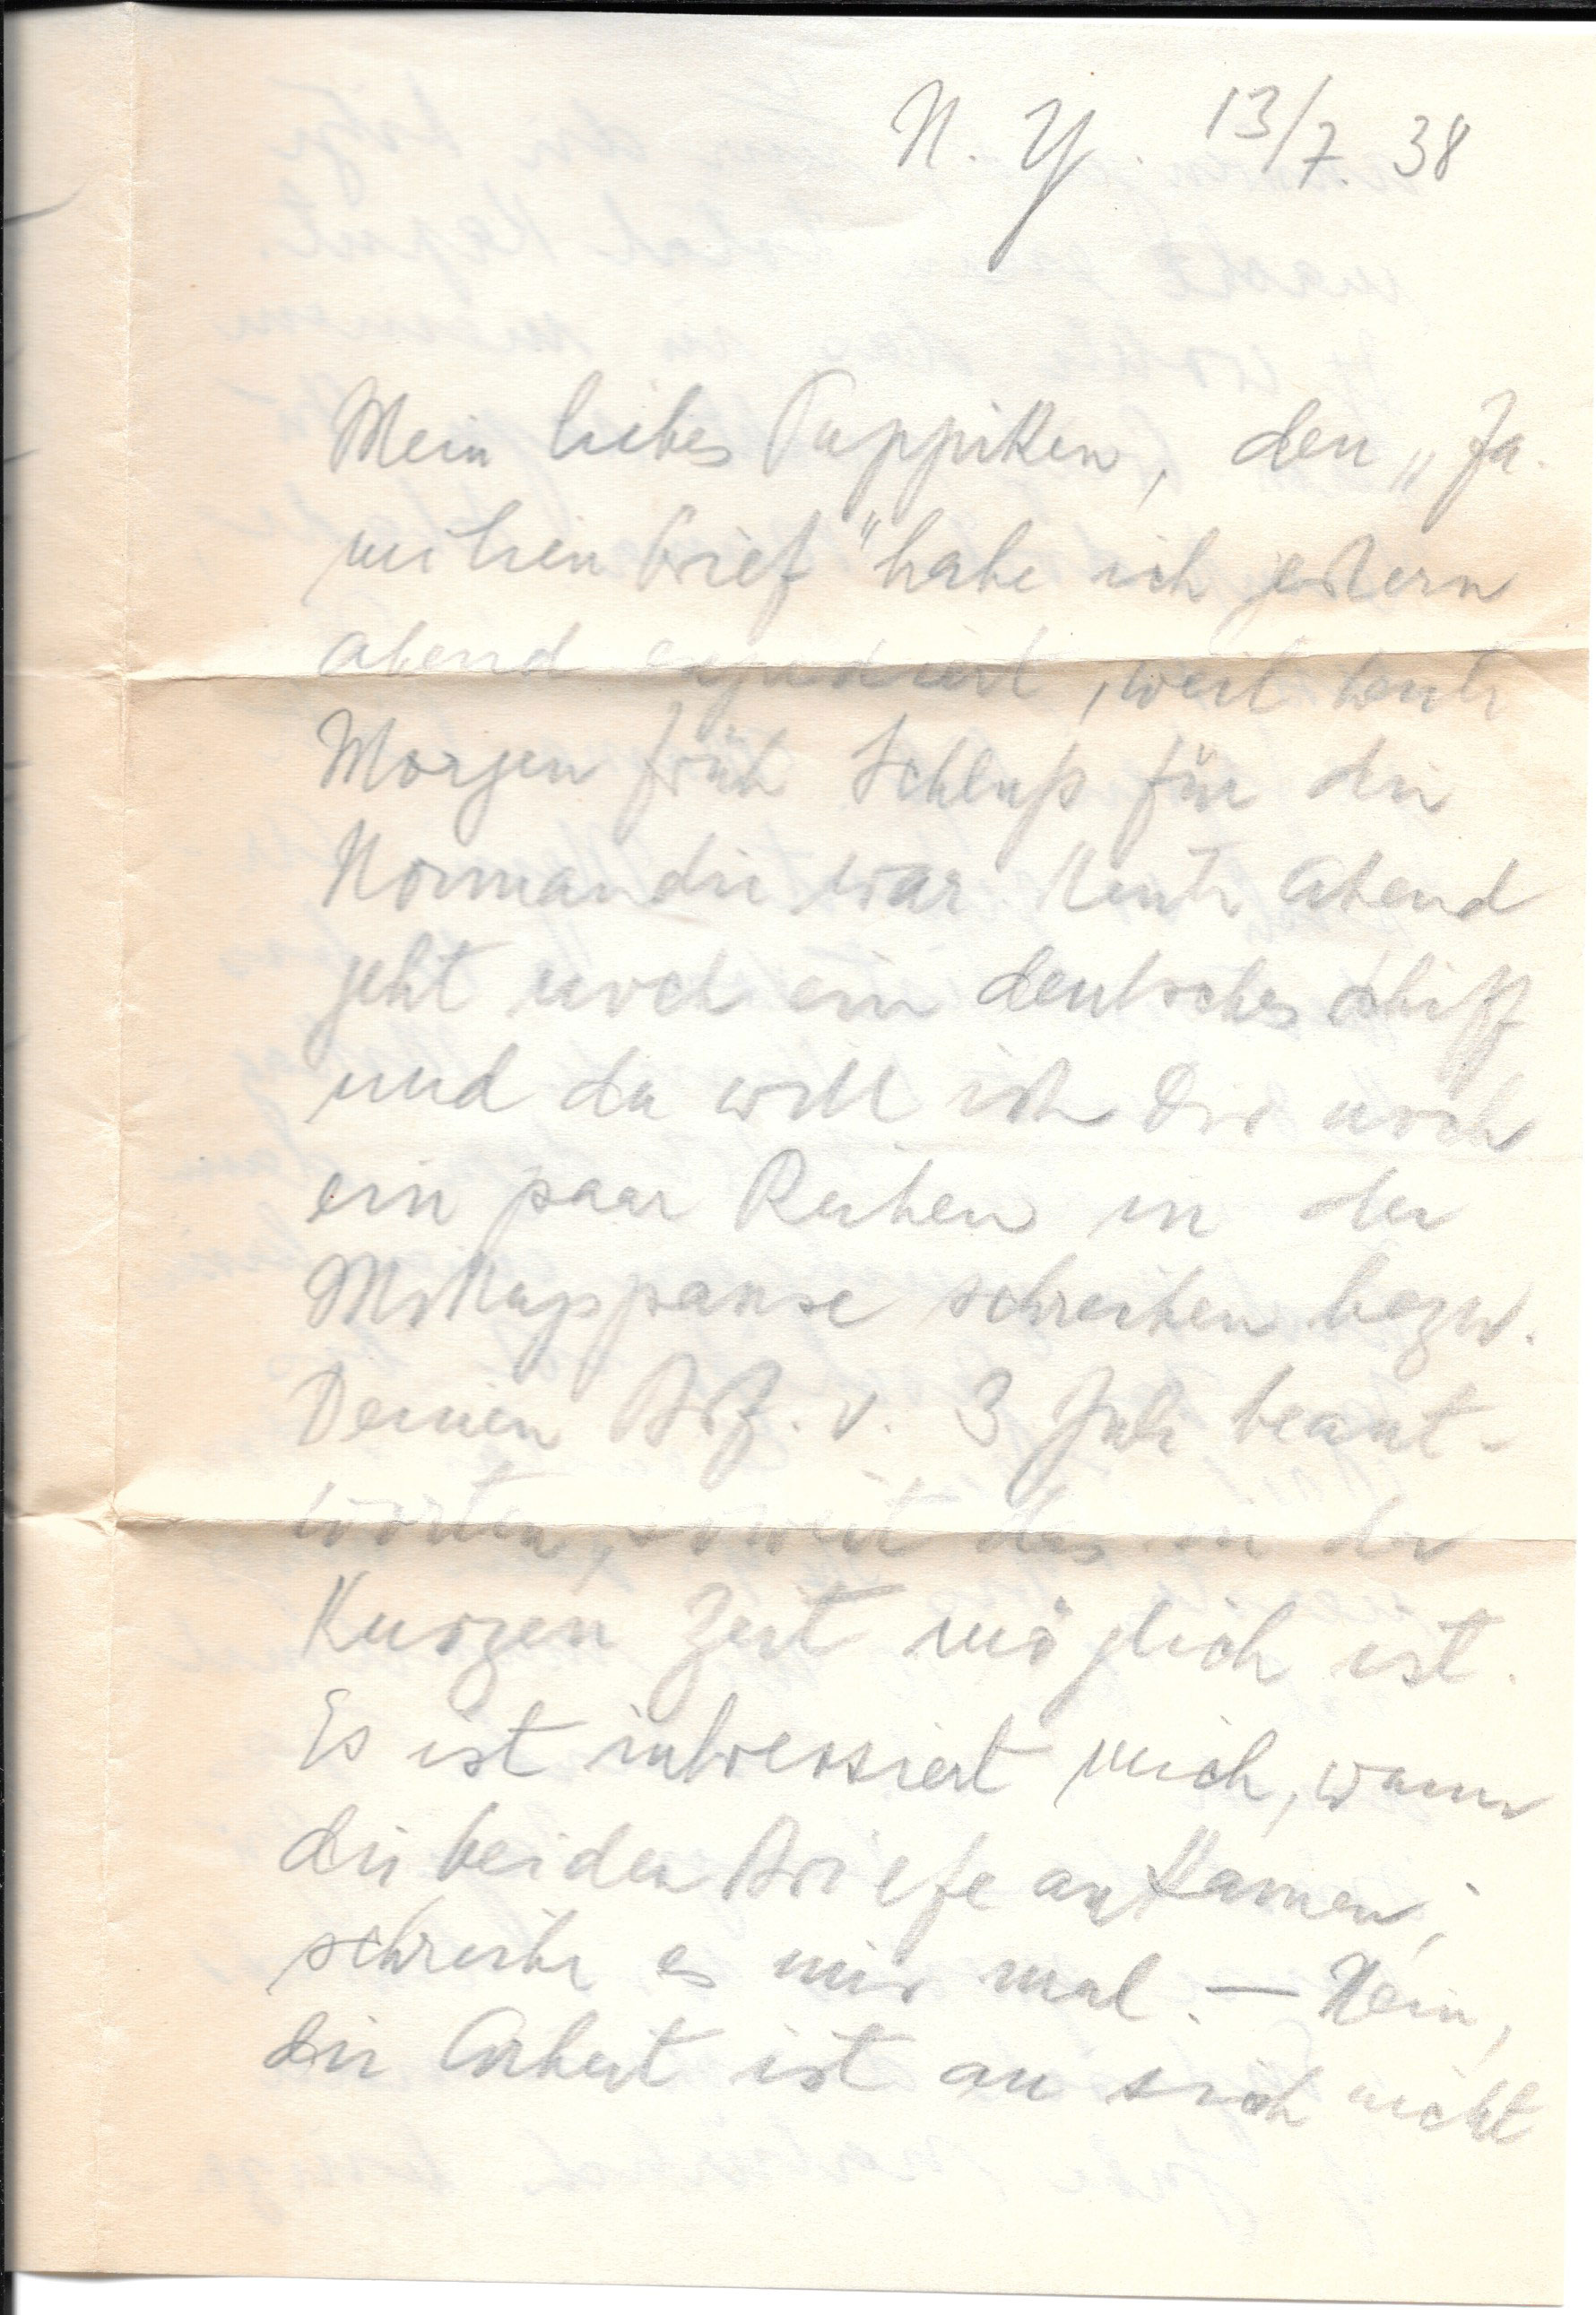 N. Y. 13/7. 38
Mein liebes Puppiken, den „Fa-
milienbrief" habe ich gestern
abend expediert, weil heute
Morgen früh Schluß für die
Normandie war. Heute abend
geht noch ein deutsches Schiff
und da will ich Dir noch
ein paar Reihen in der
Mittagspause schreiben bezw.
Deinen Brf. v. 3 Juli beant-
worten, soweit das in der
kurzen Zeit möglich ist.
Es ist interessiert mich, wann
die beiden Briefe ankamen;
schreibe es mir mal. — Nein,
die Arbeit ist an sich nicht